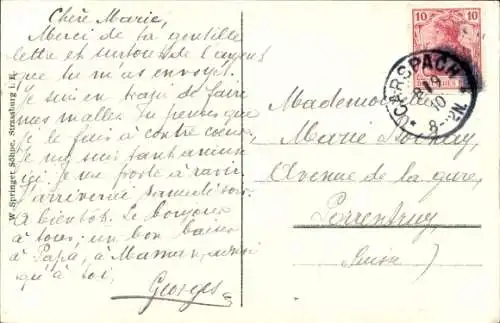 Chère Marie,
Merci de ta gentille
lettre et surtout de l'argent
que tu m'as envoyé.
Je suis en train de faire
mes malles. Tu penses que
je le fais à contre cœur,
je me suis tant amusé
ici. Je me porte à ravir.
J'arriverai samedi soir.
A bientôt. Le bonjour
à tous; un bon baiser
à Papa, à Maman, ainsi
qu'à toi,
Georges
W. Springer Söhne, Strassburg i. E.
10 10
CARSPACH
8-12N.
Mademoiselle
Marie
Avenue de la gare,
Porrentruy
(Suisse)